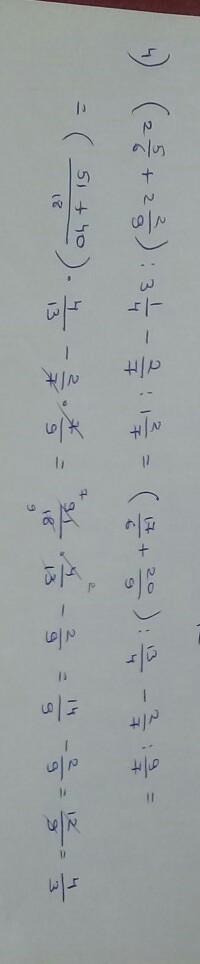 4) (2 5/6 + 2 2/9) : 3 1/4 - 2/7 : 1 2/7 = (17/6 + 20/9) : 13/4 - 2/7 : 9/7 =
= ((51 + 40)/18) · 4/13 - 2/7 · 7/9 = 91/18 · 4/13 - 2/9 = 14/9 - 2/9 = 12/9 = 4/3